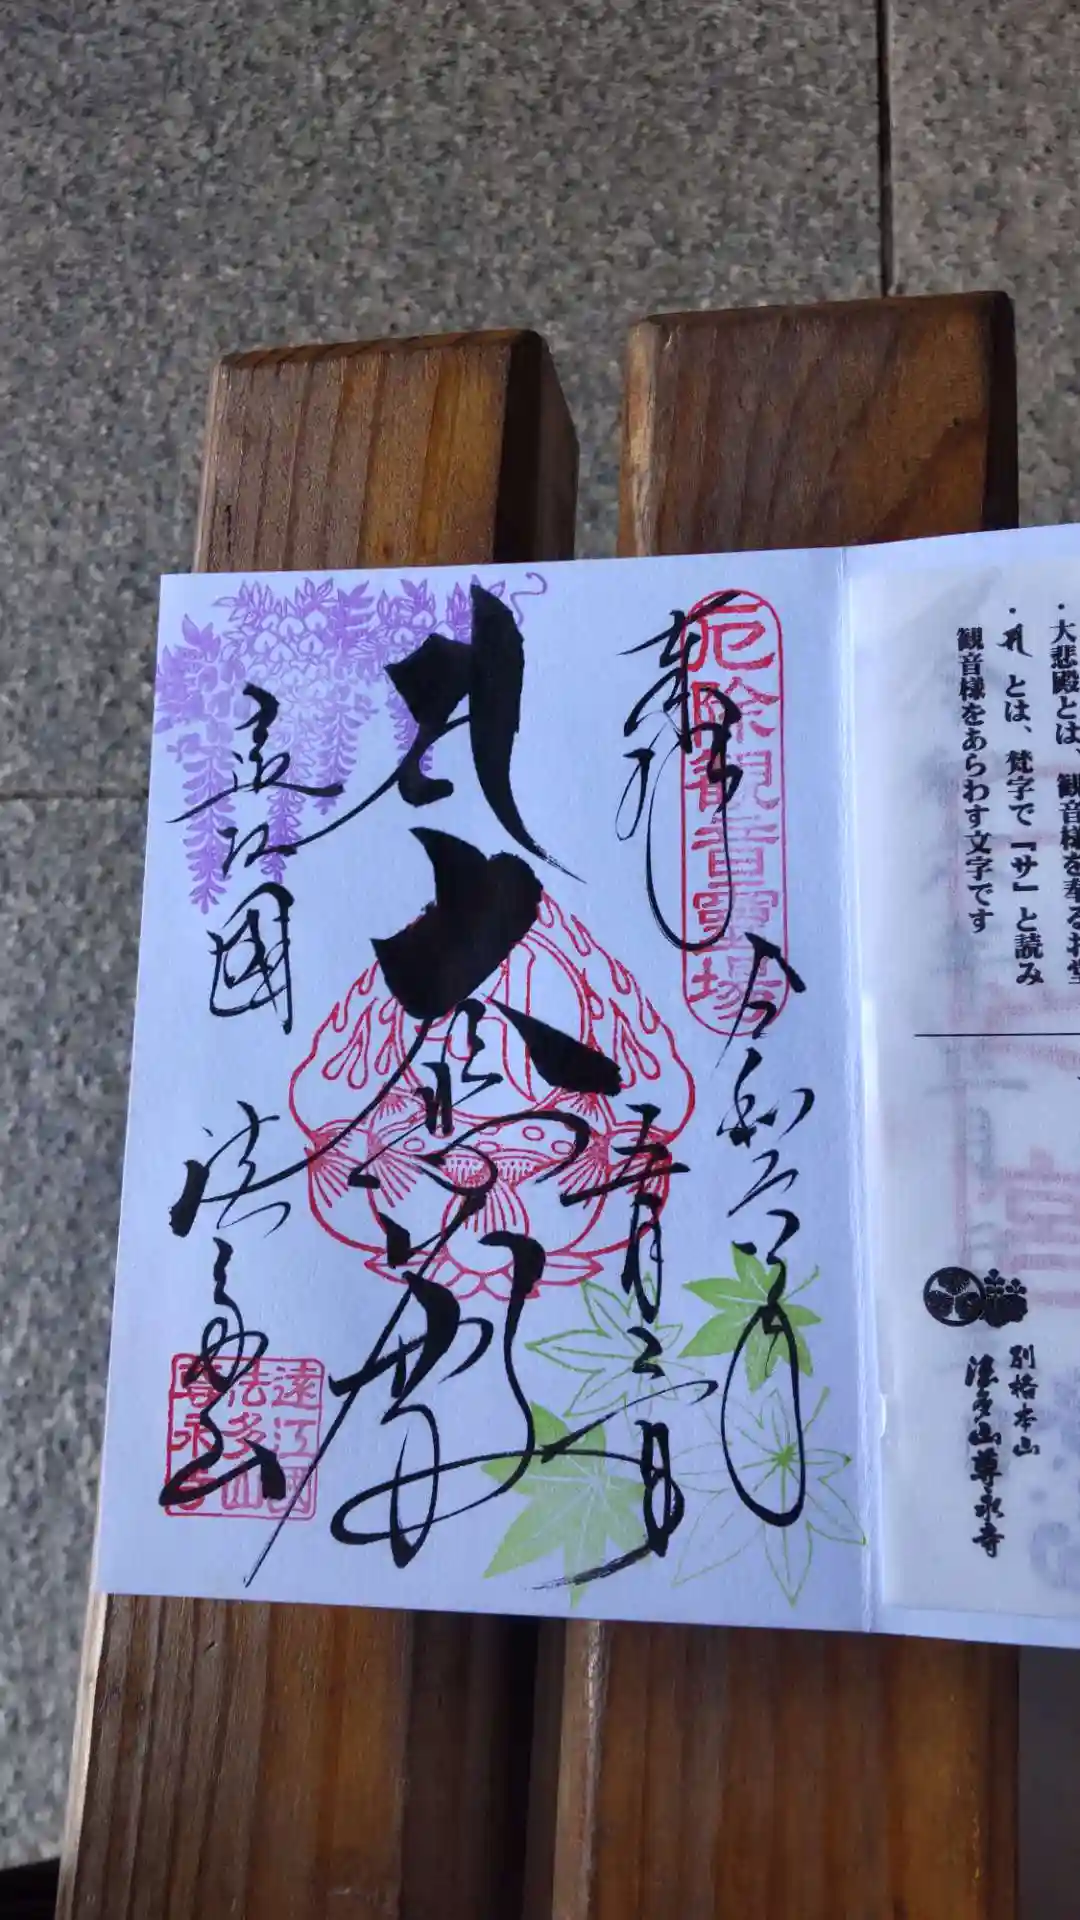 ・大悲殿とは、観音様を奉るお堂
・𑖭 とは、梵字で『サ』と読み
観音様をあらわす文字です
別格本山
法多山尊永寺
厄除観音霊場
奉拝
令和六年
五月三日
𑖭
大悲殿
遠江國
法多山
遠江國
法多山
尊永寺